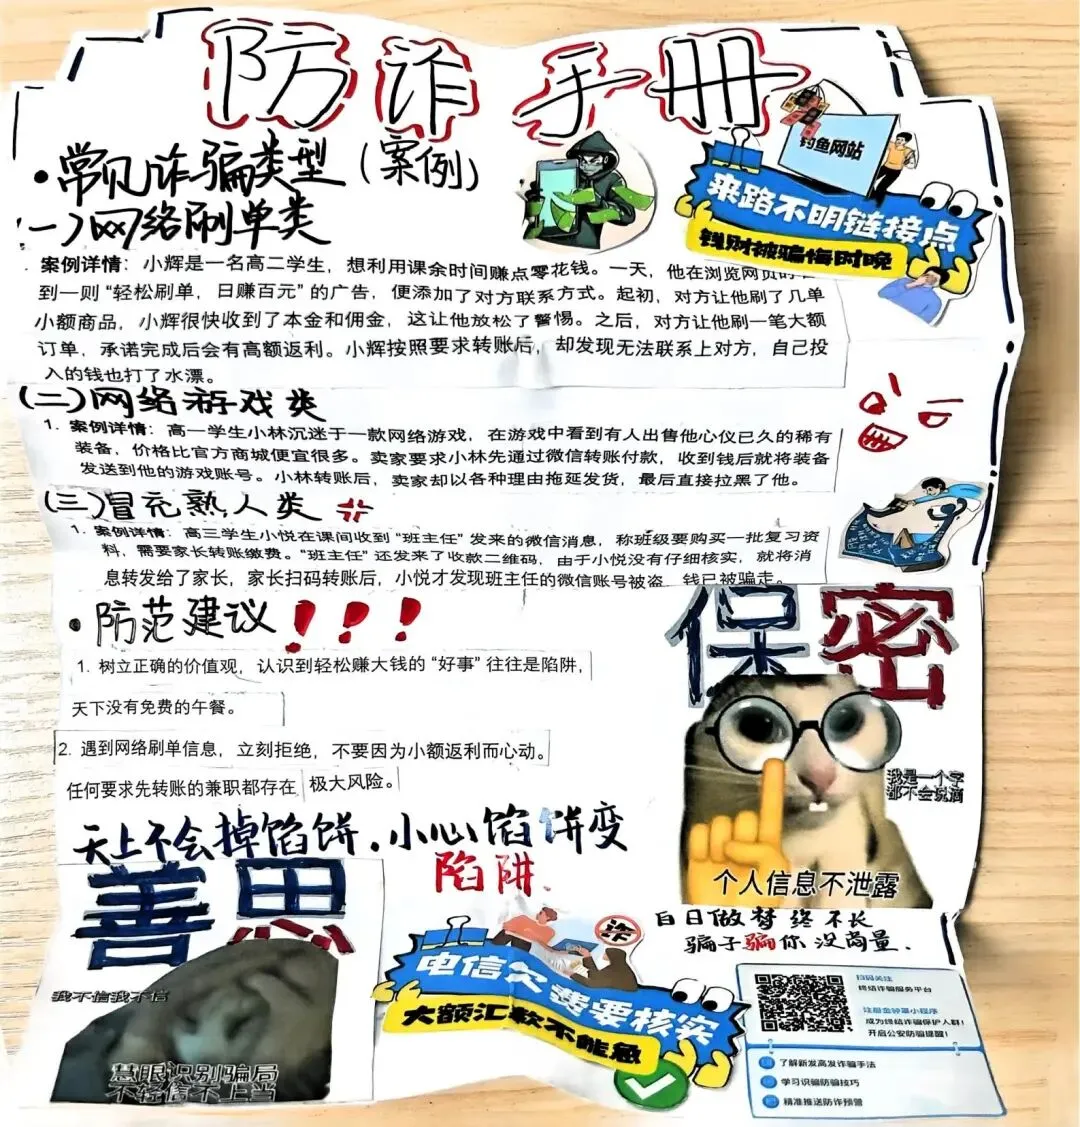 防诈手册
•常见诈骗类型(案例)
(一)网络刷单类
钓鱼网站
来路不明链接点
钱财被骗悔时晚
案例详情:小辉是一名高二学生,想利用课余时间赚点零花钱。一天,他在浏览网页时
到一则“轻松刷单,日赚百元”的广告,便添加了对方联系方式。起初,对方让他刷了几单
小额商品,小辉很快收到了本金和佣金,这让他放松了警惕。之后,对方让他刷一笔大额
订单,承诺完成后会有高额返利。小辉按照要求转账后,却发现无法联系上对方,自己投
入的钱也打了水漂。
(二)网络游戏类
1. 案例详情:高一学生小林沉迷于一款网络游戏,在游戏中看到有人出售他心仪已久的稀有
装备,价格比官方商城便宜很多。卖家要求小林先通过微信转账付款,收到钱后就将装备
发送到他的游戏账号。小林转账后,卖家却以各种理由拖延发货,最后直接拉黑了他。
(三)冒充熟人类
1. 案例详情:高三学生小悦在课间收到“班主任”发来的微信消息,称班级要购买一批复习资
料,需要家长转账缴费。“班主任”还发来了收款二维码,由于小悦没有仔细核实,就将消
息转发给了家长,家长扫码转账后,小悦才发现班主任的微信账号被盗,钱已被骗走。
•防范建议!!!
1. 树立正确的价值观,认识到轻松赚大钱的“好事”往往是陷阱,
天下没有免费的午餐。
2. 遇到网络刷单信息,立刻拒绝,不要因为小额返利而心动。
任何要求先转账的兼职都存在 极大风险。
保密
我是一个字
都不会说滴
个人信息不泄露
天上不会掉馅饼,小心馅饼变
陷阱.
善思
我不信我不信
慧眼识别骗局
不轻信不上当
诈
电信欠费要核实
大额汇款不能急
白日做梦终不长
骗子骗你没商量.
扫码关注
终结诈骗服务平台
注册金钟罩小程序
成为终结诈骗保护人群!
开启公安防骗提醒!
了解新发高发诈骗手法
学习识骗防骗技巧
精准推送防诈预警